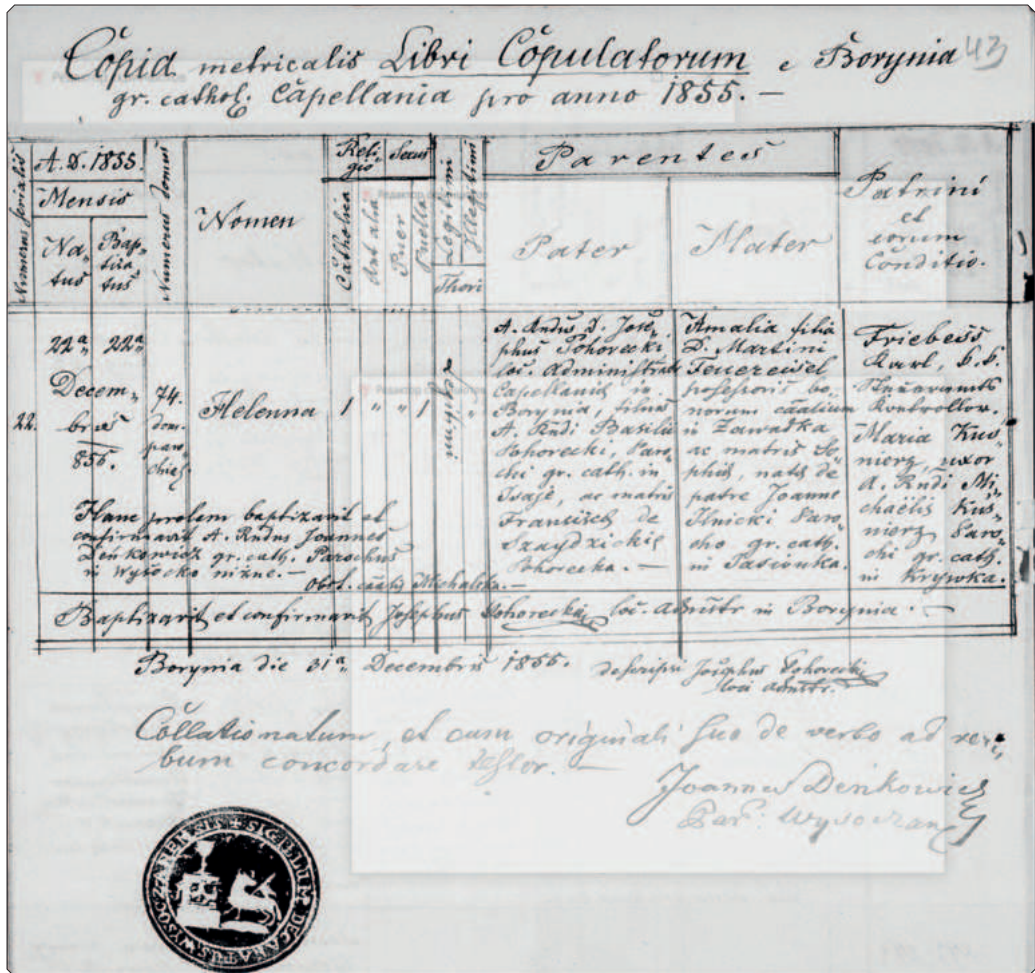 Copia metricalis Libri Copulatorum e Borynia 43
gr. cathol. Capellania pro anno 1855. —
Numerus serialis
A. D. 1855.
Mensis
Na-
tus
Bap-
tiza-
tus
Numerus domus
Nomen
Reli-
gio
Catholica
Aut alia
Sexus
Puer
Puella
Legitimi
Illegitimi
Thori
Parentes
Pater
Mater
Patrini
et
eorum
Conditio.
22.
22a 22a
Decem-
bris
855.
74.
dom.
paro-
chial
Helenna
1 " " 1
"
A. Rndus D. Jose-
phus Pohorecki
loc. Administrat.
Capellaniae in
Borynia, filius
A. Rndi Basilii
Pohorecki, Paro-
chi gr. cath. in
Isaje, ac matris
Francisca de
Szaydzickie
Pohorecka. —
Amalia filia
D. Martini
Feuereisel
possessoris bo-
norum
in Zawadka
ac matris So-
phiae, natae de
patre Joanne
Ilnicki Paro-
cho gr. cath.
in Jasionka.
Friebess
Karl, k. k.
Kontrollor.
Maria Kus-
nierz, uxor
A. Rndi Mi-
chaëlis Kus-
nierz Paro-
chi gr. cath.
in Krywka.
Hanc prolem baptizavit et
confirmavit A. Rndus Joannes
Deńkowicz gr. cath. Parochus
in Wysocko niżne. —
Obst. Michalska. —
Baptizavit et confirmavit Josephus Pohorecki loc. Admstr in Borynia. —
Borynia die 31a Decembris 1855.
descripsi Josephus Pohorecki
loci admstr.
Collationatum, et cum originali suo de verbo ad ver-
bum concordare testor. —
Joannes Deńkowicz
Par. Wysoczan
SIGILLUM DECANATUS WYSOCZANENSIS